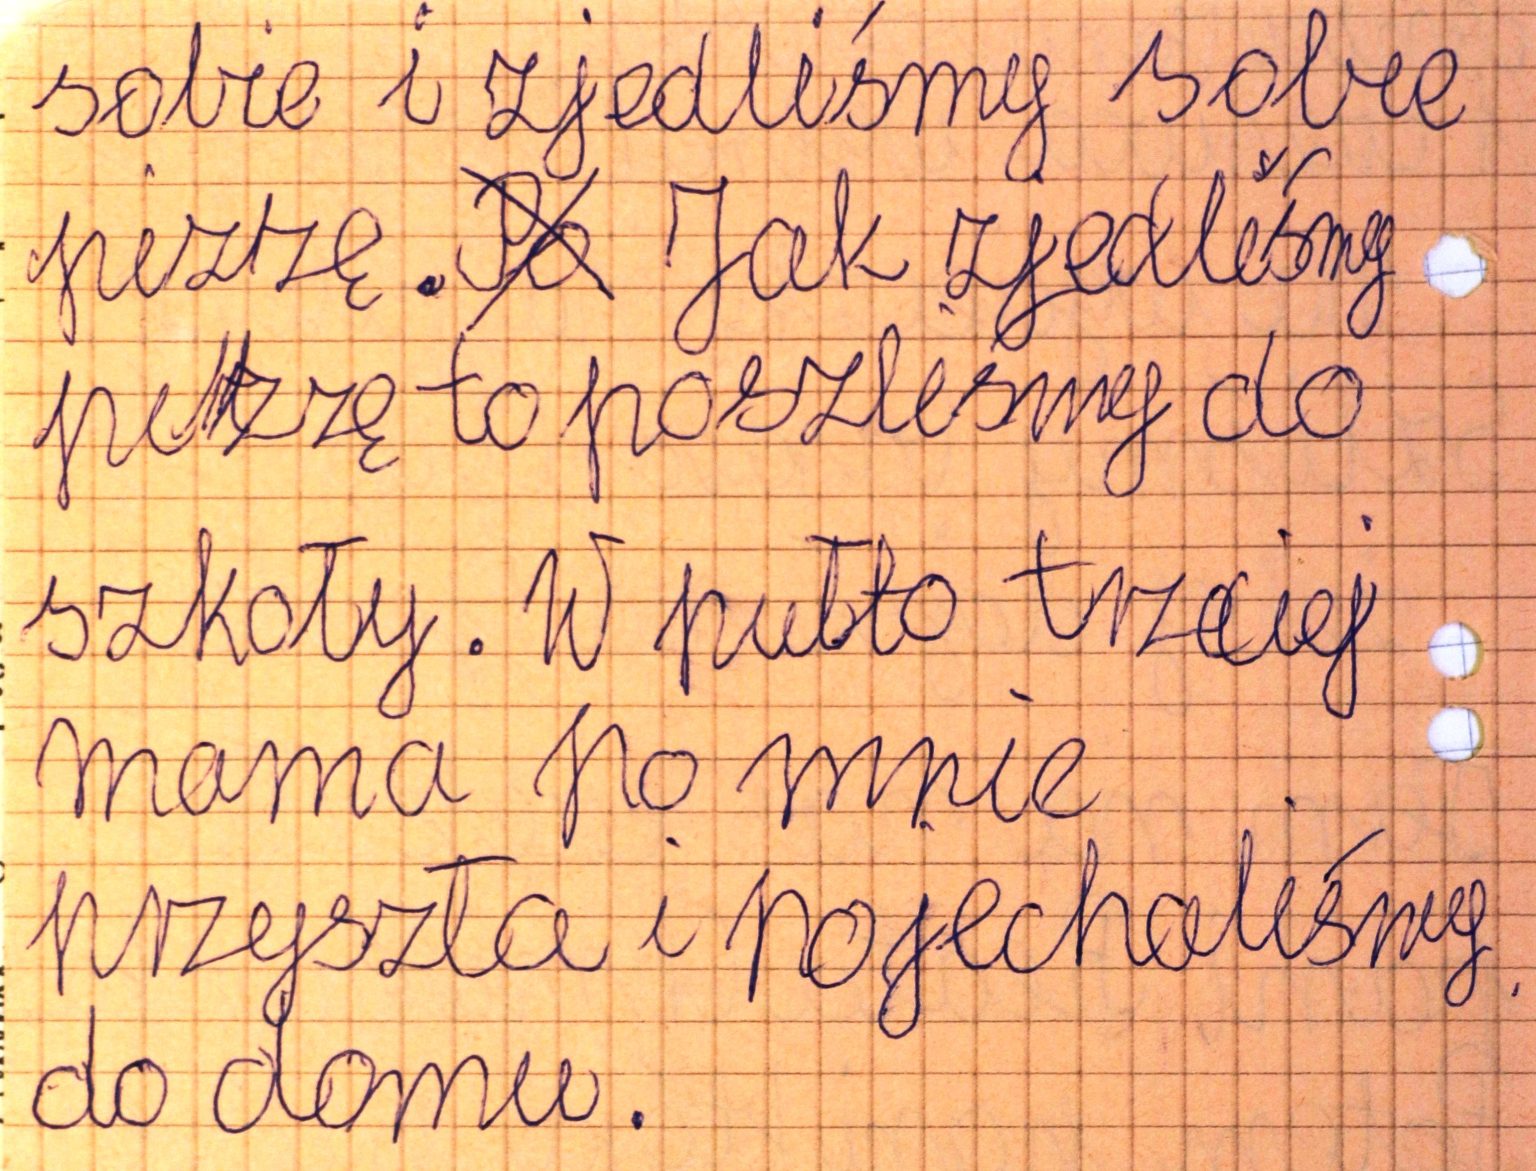 sobie i zjedliśmy sobie
pizzę. Jak zjedliśmy
pizzę to poszliśmy do
szkoły. W putto trzciej
mama po mnie
przyszła i pojechaliśmy
do domu.